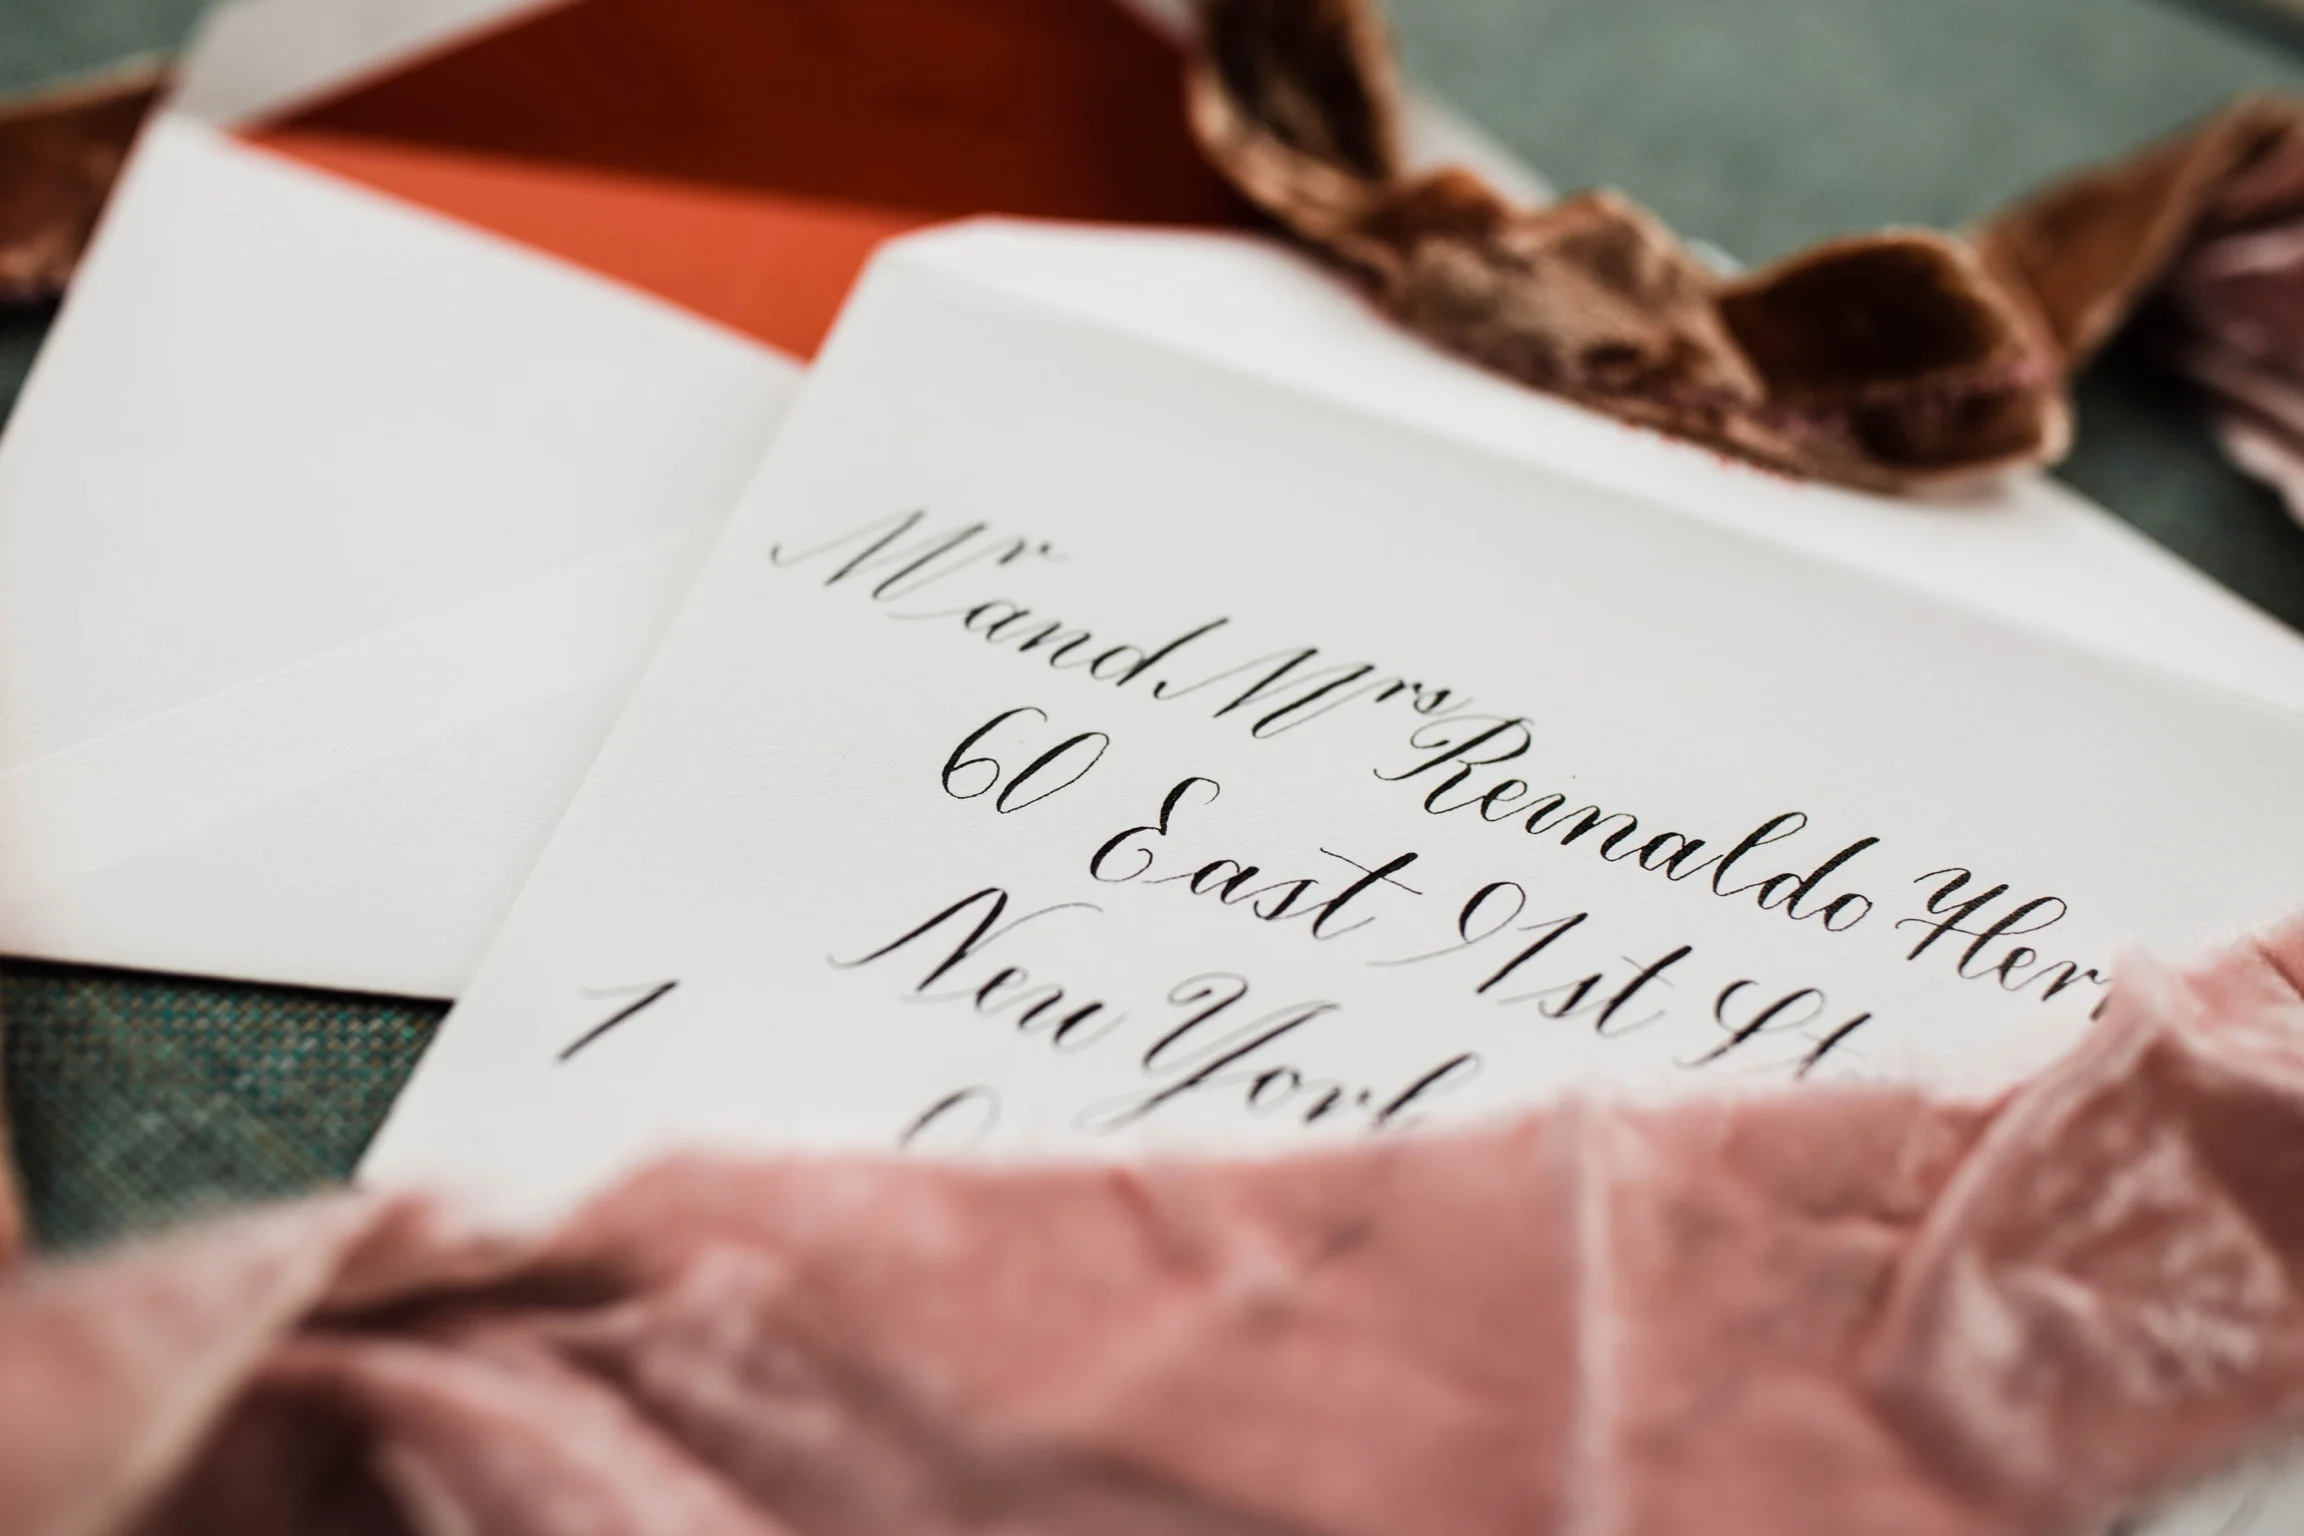 Mr and Mrs Reinaldo Her
60 East 91st St
New York
1